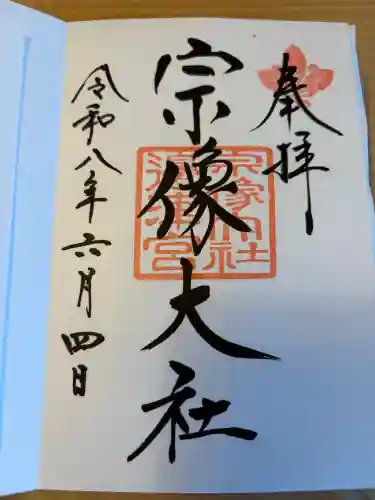 奉拝
宗像大社
宗像大社
邊津宮
令和八年六月四日